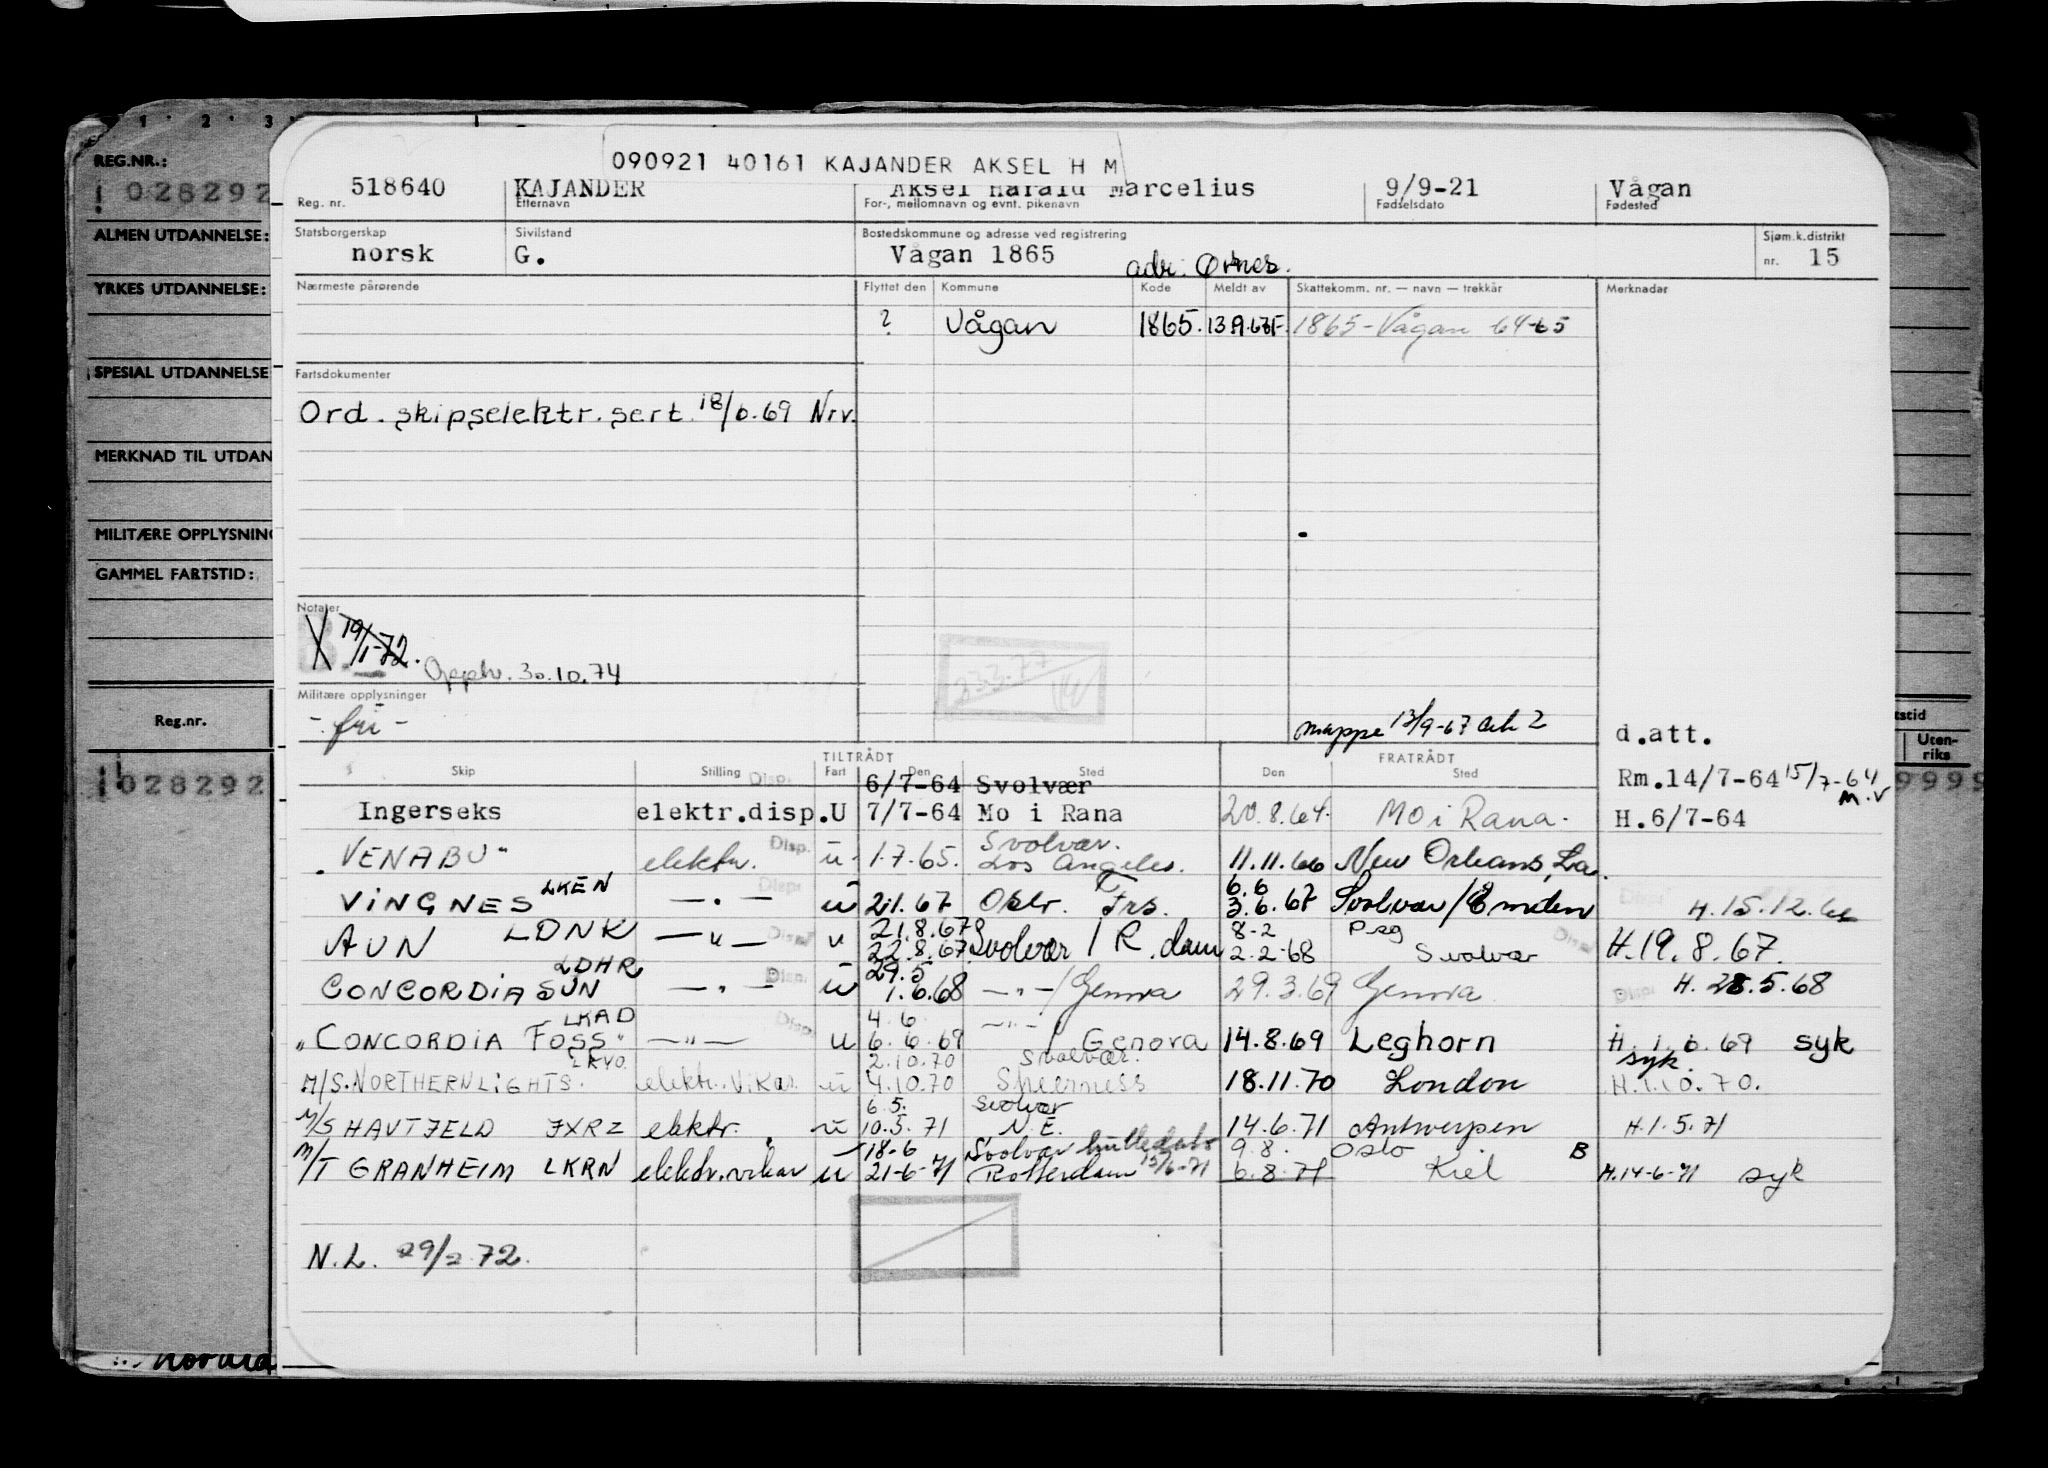 1 2 3
REG.NR.:
028292
ALMEN UTDANNELSE:
YRKES UTDANNELSE:
SPESIAL UTDANNELSE
MERKNAD TIL UTDAN
MILITÆRE OPPLYSNIN
GAMMEL FARTSTID:
Reg.nr.
028292
090921 40161 KAJANDER AKSEL H M
518640 KAJANDER Aksel Harald Marcelius 9/9-21 Vågan
Reg. nr. Etternavn For-, mellomnavn og evnt. pikenavn Fødselsdato Fødested
Statsborgerskap Sivilstand Bostedskommune og adresse ved registrering Sjøm.k.distrikt
norsk G. Vågan 1865 adr. Ørsnes. nr. 15
Nærmeste pårørende Flyttet den Kommune Kode Meldt av Skattekomm. nr. — navn — trekkår Merknader
? Vågan 1865. 13A.63F. 1865-Vågan 64-65
Fartsdokumenter
Ord. skipselektr. sert. 18/6.69 Nrv.
Notater
19/1-72.
Opph. 30.10.74
23.3.77
Militære opplysninger
- fri -
mappe 13/9-67 ark 2 d.att.
TILTRÅDT FRATRÅDT
Skip Stilling Disp. Fart Den Sted Den Sted
6/7-64 Svolvær Rm.14/7-64 15/7-64 M.V
Ingerseks elektr.disp.U 7/7-64 Mo i Rana 20.8.64. MO i Rana. H.6/7-64
Svolvær.
VENABU" elektr. Disp. u 1.7.65. Los Angeles. 11.11.66 New Orleans, La.
LKEN Disp. 6.6
VINGNES — " — u 2.1.67 Frs. 3.6.67 Svolvær/Emden Disp. H.15.12.66
21.8.67 8-2 Psg
AUN LDNK — " — Disp. u 22.8.67 Svolvær / R.dam 2.2-68 Svolvær Disp. H.19.8.67.
LDHR 29.5
CONCORDIA SUN — " — Disp. u 1.6.68 — " — / Genova 29.3.69 Genova Disp. H. 28.5.68
LKAD 4.6 — " —
"CONCORDIA FOSS" — " — Disp. u 6.6.69 / Genova 14.8.69 Leghorn H. 1.6.69 syk
LKVO. 2.10.70 Svolvær. syk.
M/S. NORTHERN LIGHTS. elektr. vikar u 4.10.70 Sheerness 18.11.70 London H.1.10.70.
6.5. Svolvær
M/S HAVTJELD JXRZ elektr. u 10.5.71 N.E. 14.6.71 Antwerpen H.1.5.71
18-6 Svolvær hulledato 9.8. Oslo B
M/T GRANHEIM LKRN elektr.vikar u 21-6-71 Rotterdam 15/6-71 6.8.71 Kiel H.14-6-71 syk
N.L. 29/2.72.
stid
Uten-
riks
9999